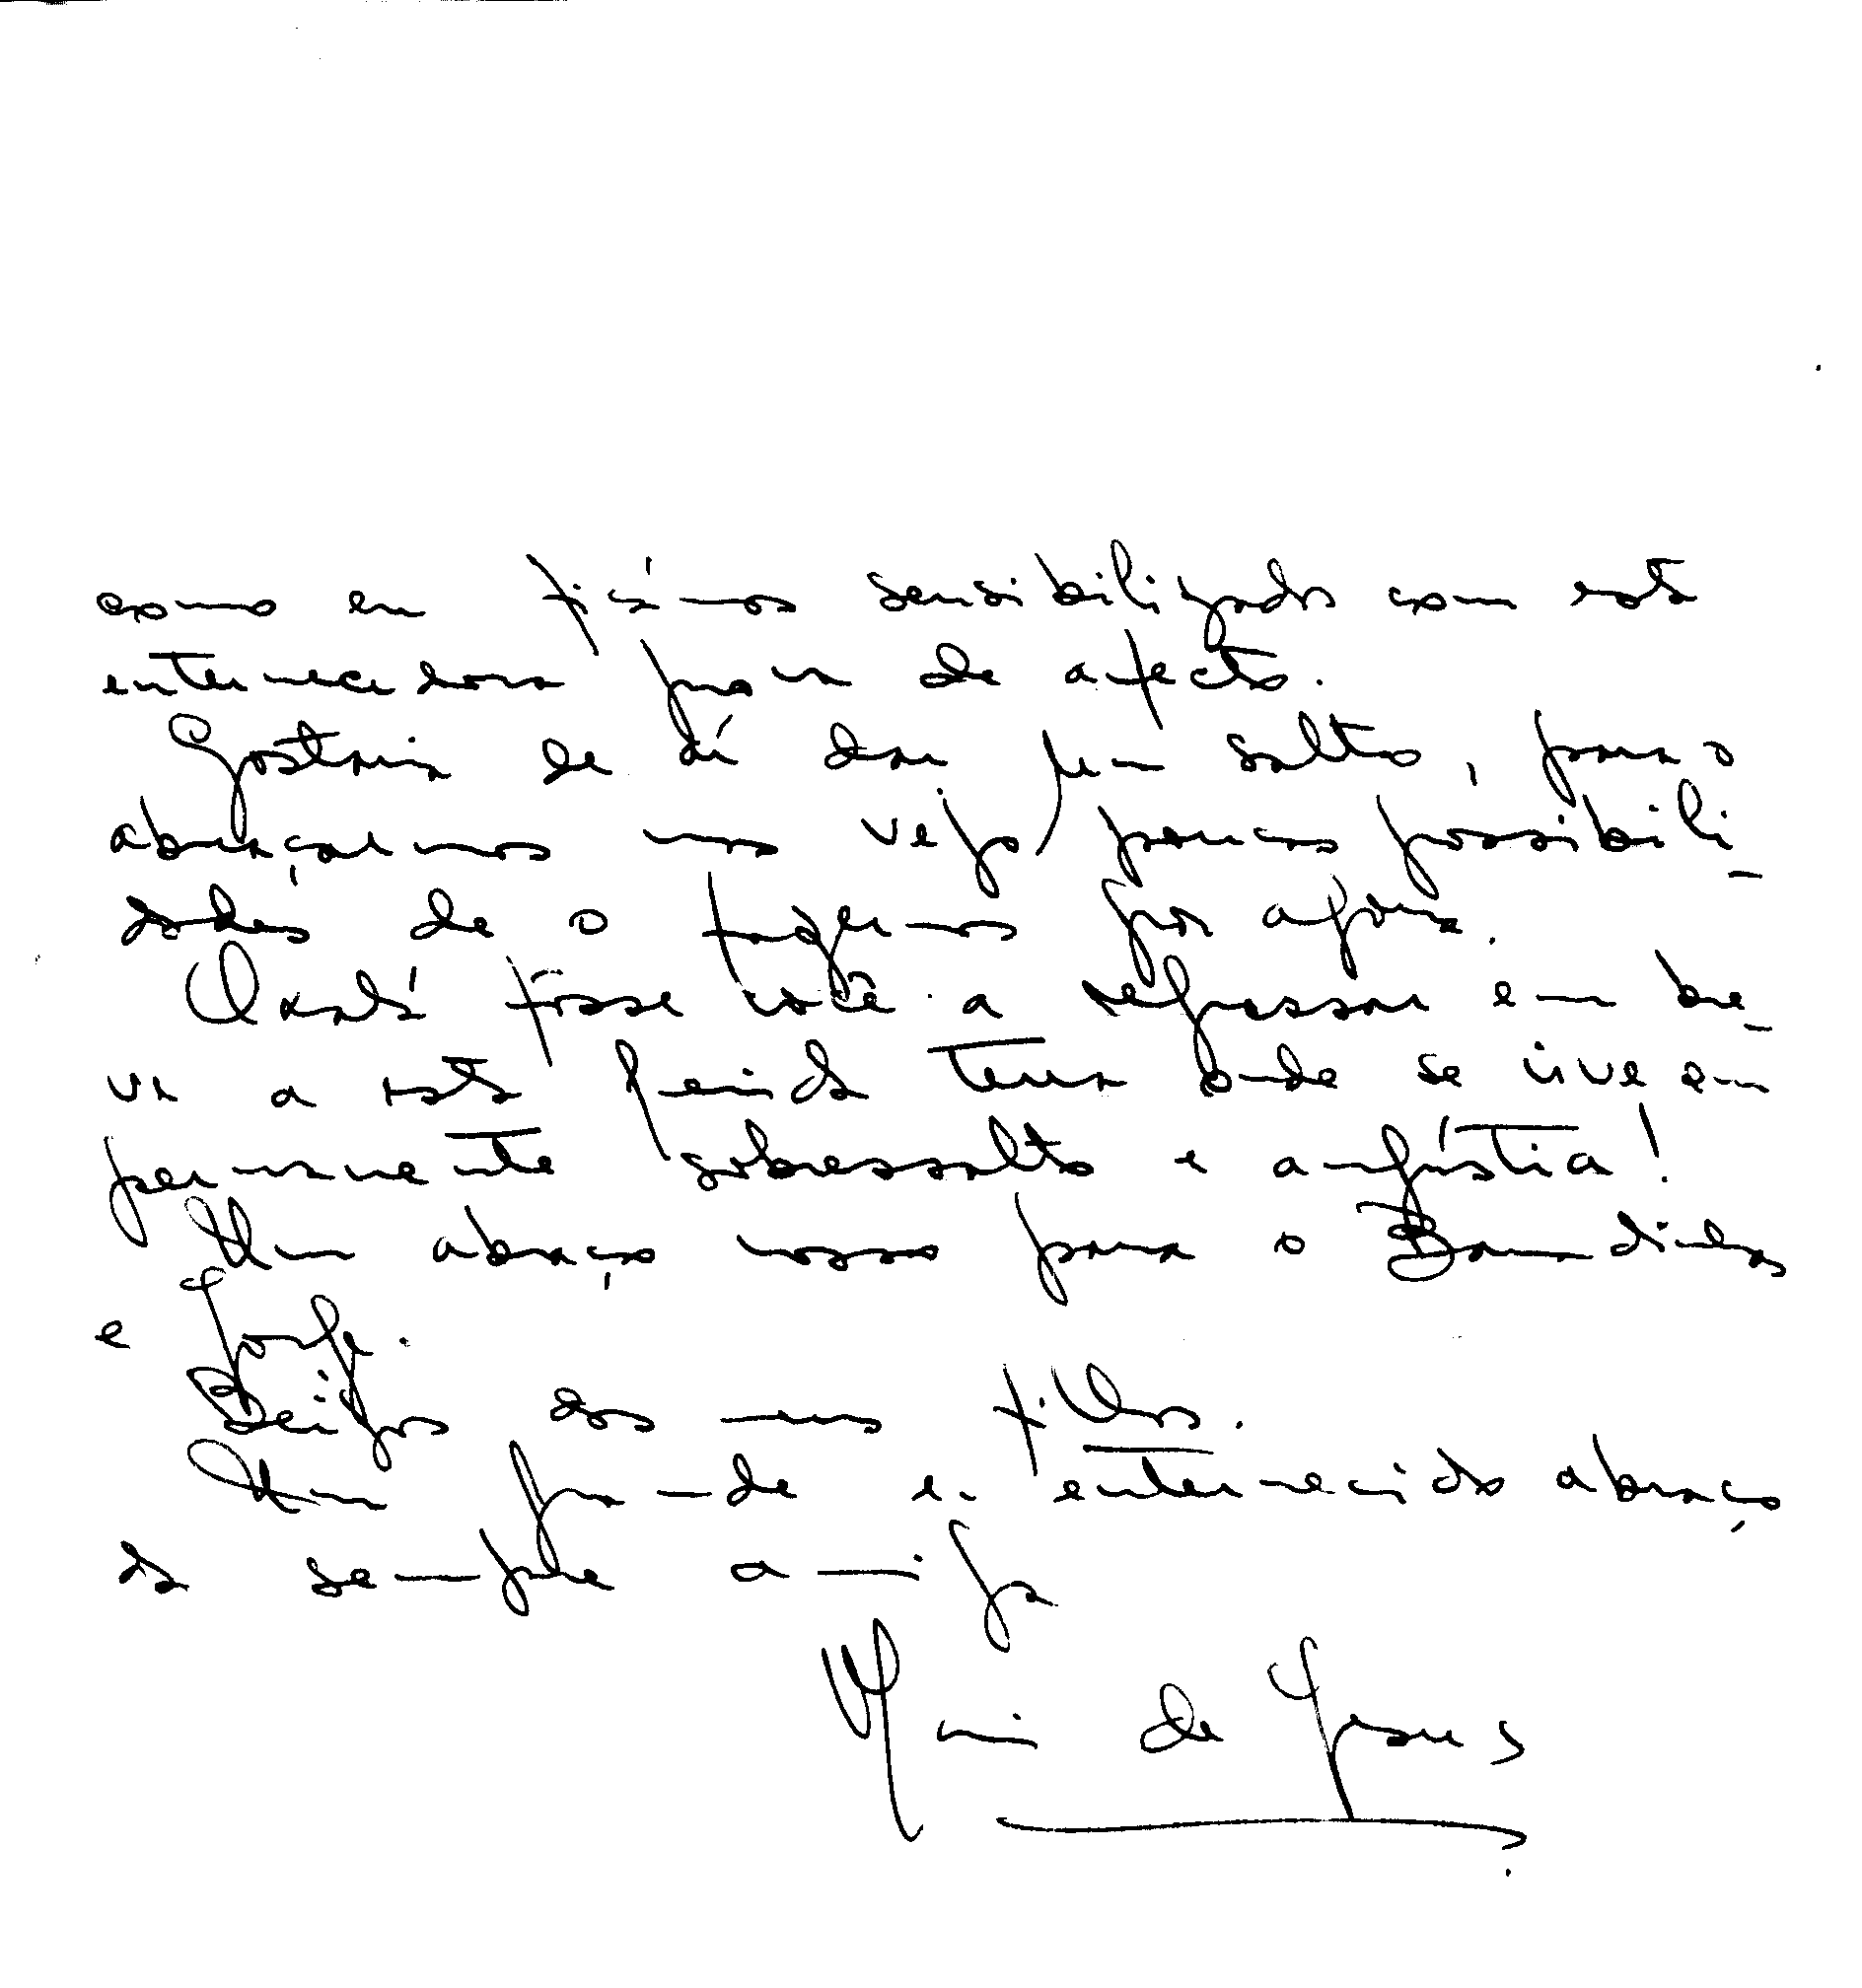 como eu ficámos sensibilizados com esta
enternecedora prova de afecto.
Gostaria de lá dar um salto, para o
abraçarmos mas vejo poucas possibili-
dades de o fazermos por agora.
Oxalá fosse você a regressar em bre-
ve a esta ferida terra onde se vive em
permanente sobressalto e angústia!
Um abraço nosso para o
e Jorge.
Beijos dos meus filhos.
Um grande e enternecido abraço
da sempre amiga
de Jesus